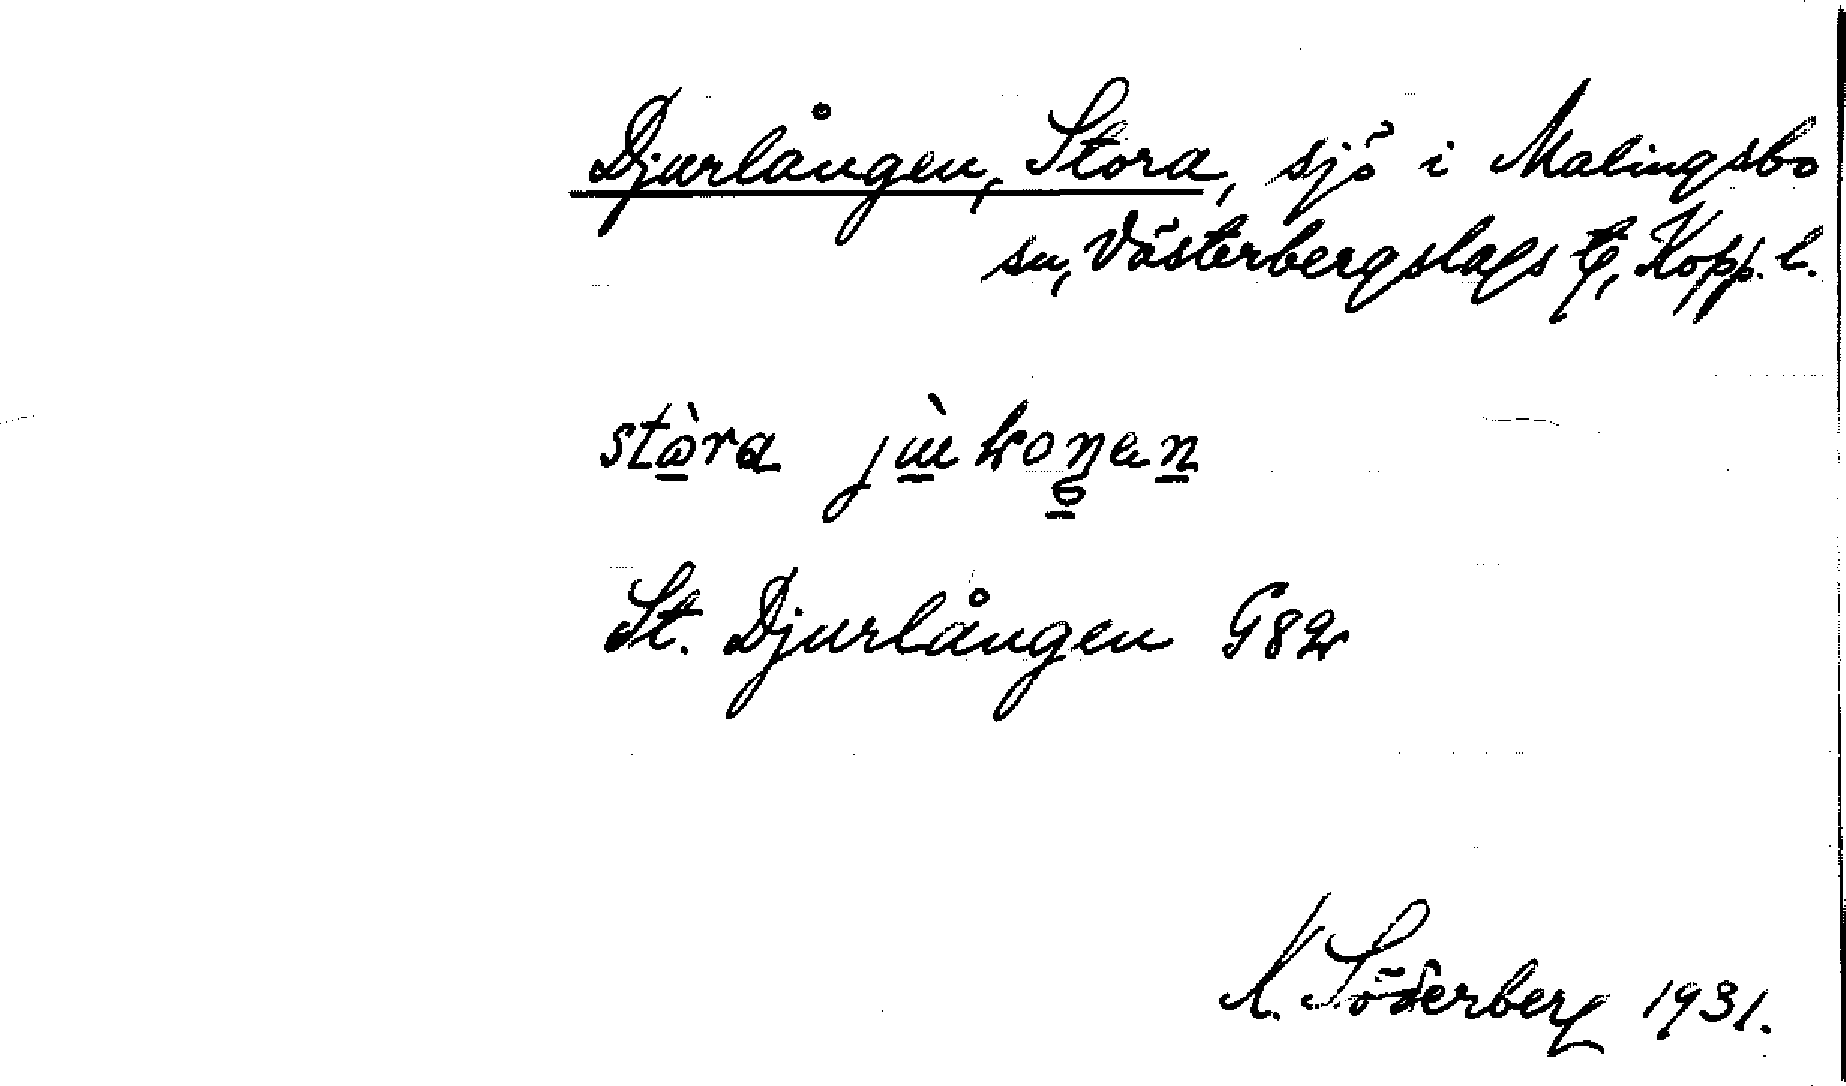 Djurlången, Stora, sjö i Malingsbo
sn, Västerbergslags tg, Kopp. l.
stòra
St. Djurlången G82
K. Söderberg 1931.